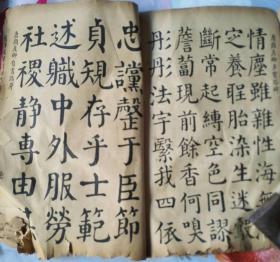 情塵雖雜性海無
定養聖胎染生迷鷇
斷常起縛空色同謬
薝蔔現前餘香何嗅
彤彤法宇繄我四依
忠讜罄于臣節
貞規存乎士範
述職中外服勞
社稷静專由